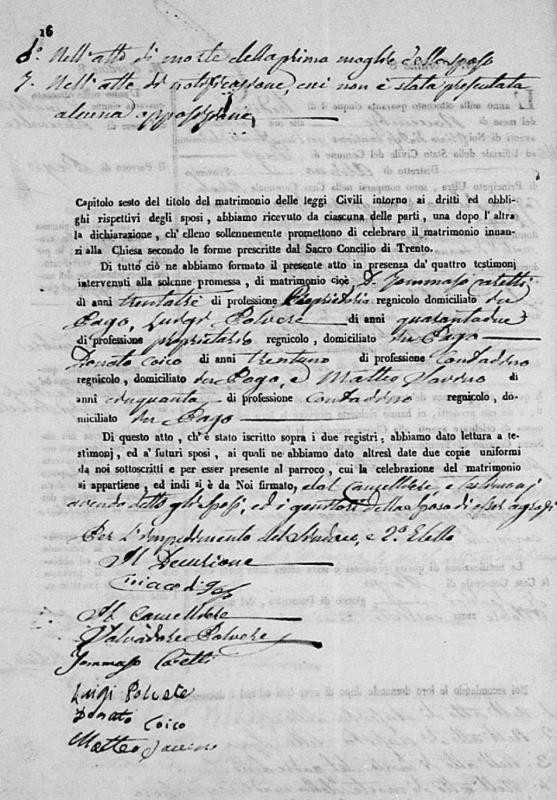 16
6.º Nell'atto di morte della prima moglie dello sposo
7. Nell'atto di notificazione, cui non è stata presentata
alcuna opposizione,
Capitolo sesto del titolo del matrimonio delle leggi Civili intorno ai dritti ed obbli
ghi rispettivi degli sposi, abbiamo ricevuto da ciascuna delle perti, una dopo l'altra
la dichiarazione, ch'elleno sollennemente promettono di celebrare il matrimonio innan
zi alla Chiesa secondo le forme prescritte dal Sacro Concilio di Trento.
Di tutto ciò ne abbiamo formato il presente atto in presenza da' quattro testimonj
intervenuti alla solenne promessa, di matrimonio cioè D. Tommaso Caretti
di anni trentatre di professione Proprietario regnicolo domiciliato in
Pago, Luigi Polvere di anni quarantadue
di professione proprietario regnicolo, domiciliato in Pago
Donato Coico di anni trentuno di professione Contadino
regnicolo, domiciliato in Pago, e Matteo di
anni cinquanta di professione contadino regnicolo, do-
miciliato in Pago
Di questo atto, ch'è stato iscritto sopra i due registri; abbiamo dato lettura a te-
stimonj, ed a' futuri sposi, ai quali ne abbiamo dato altresì date due copie uniformi
da noi sottoscritti e per esser presente al parroco, cui la celebrazione del matrimonio
si appartiene, ed indi si è da Noi firmato, e dal Cancelliere, e testimonj
avendo detto gli sposi, ed i genitori della sposa di esser
Per l'impedimento del Sindaco, e 2.º Eletto
Il Decurione
Il Cancelliere
Salvadore Polvere
Tommaso Caretti
Luigi Polvere
Donato Coico
Matteo